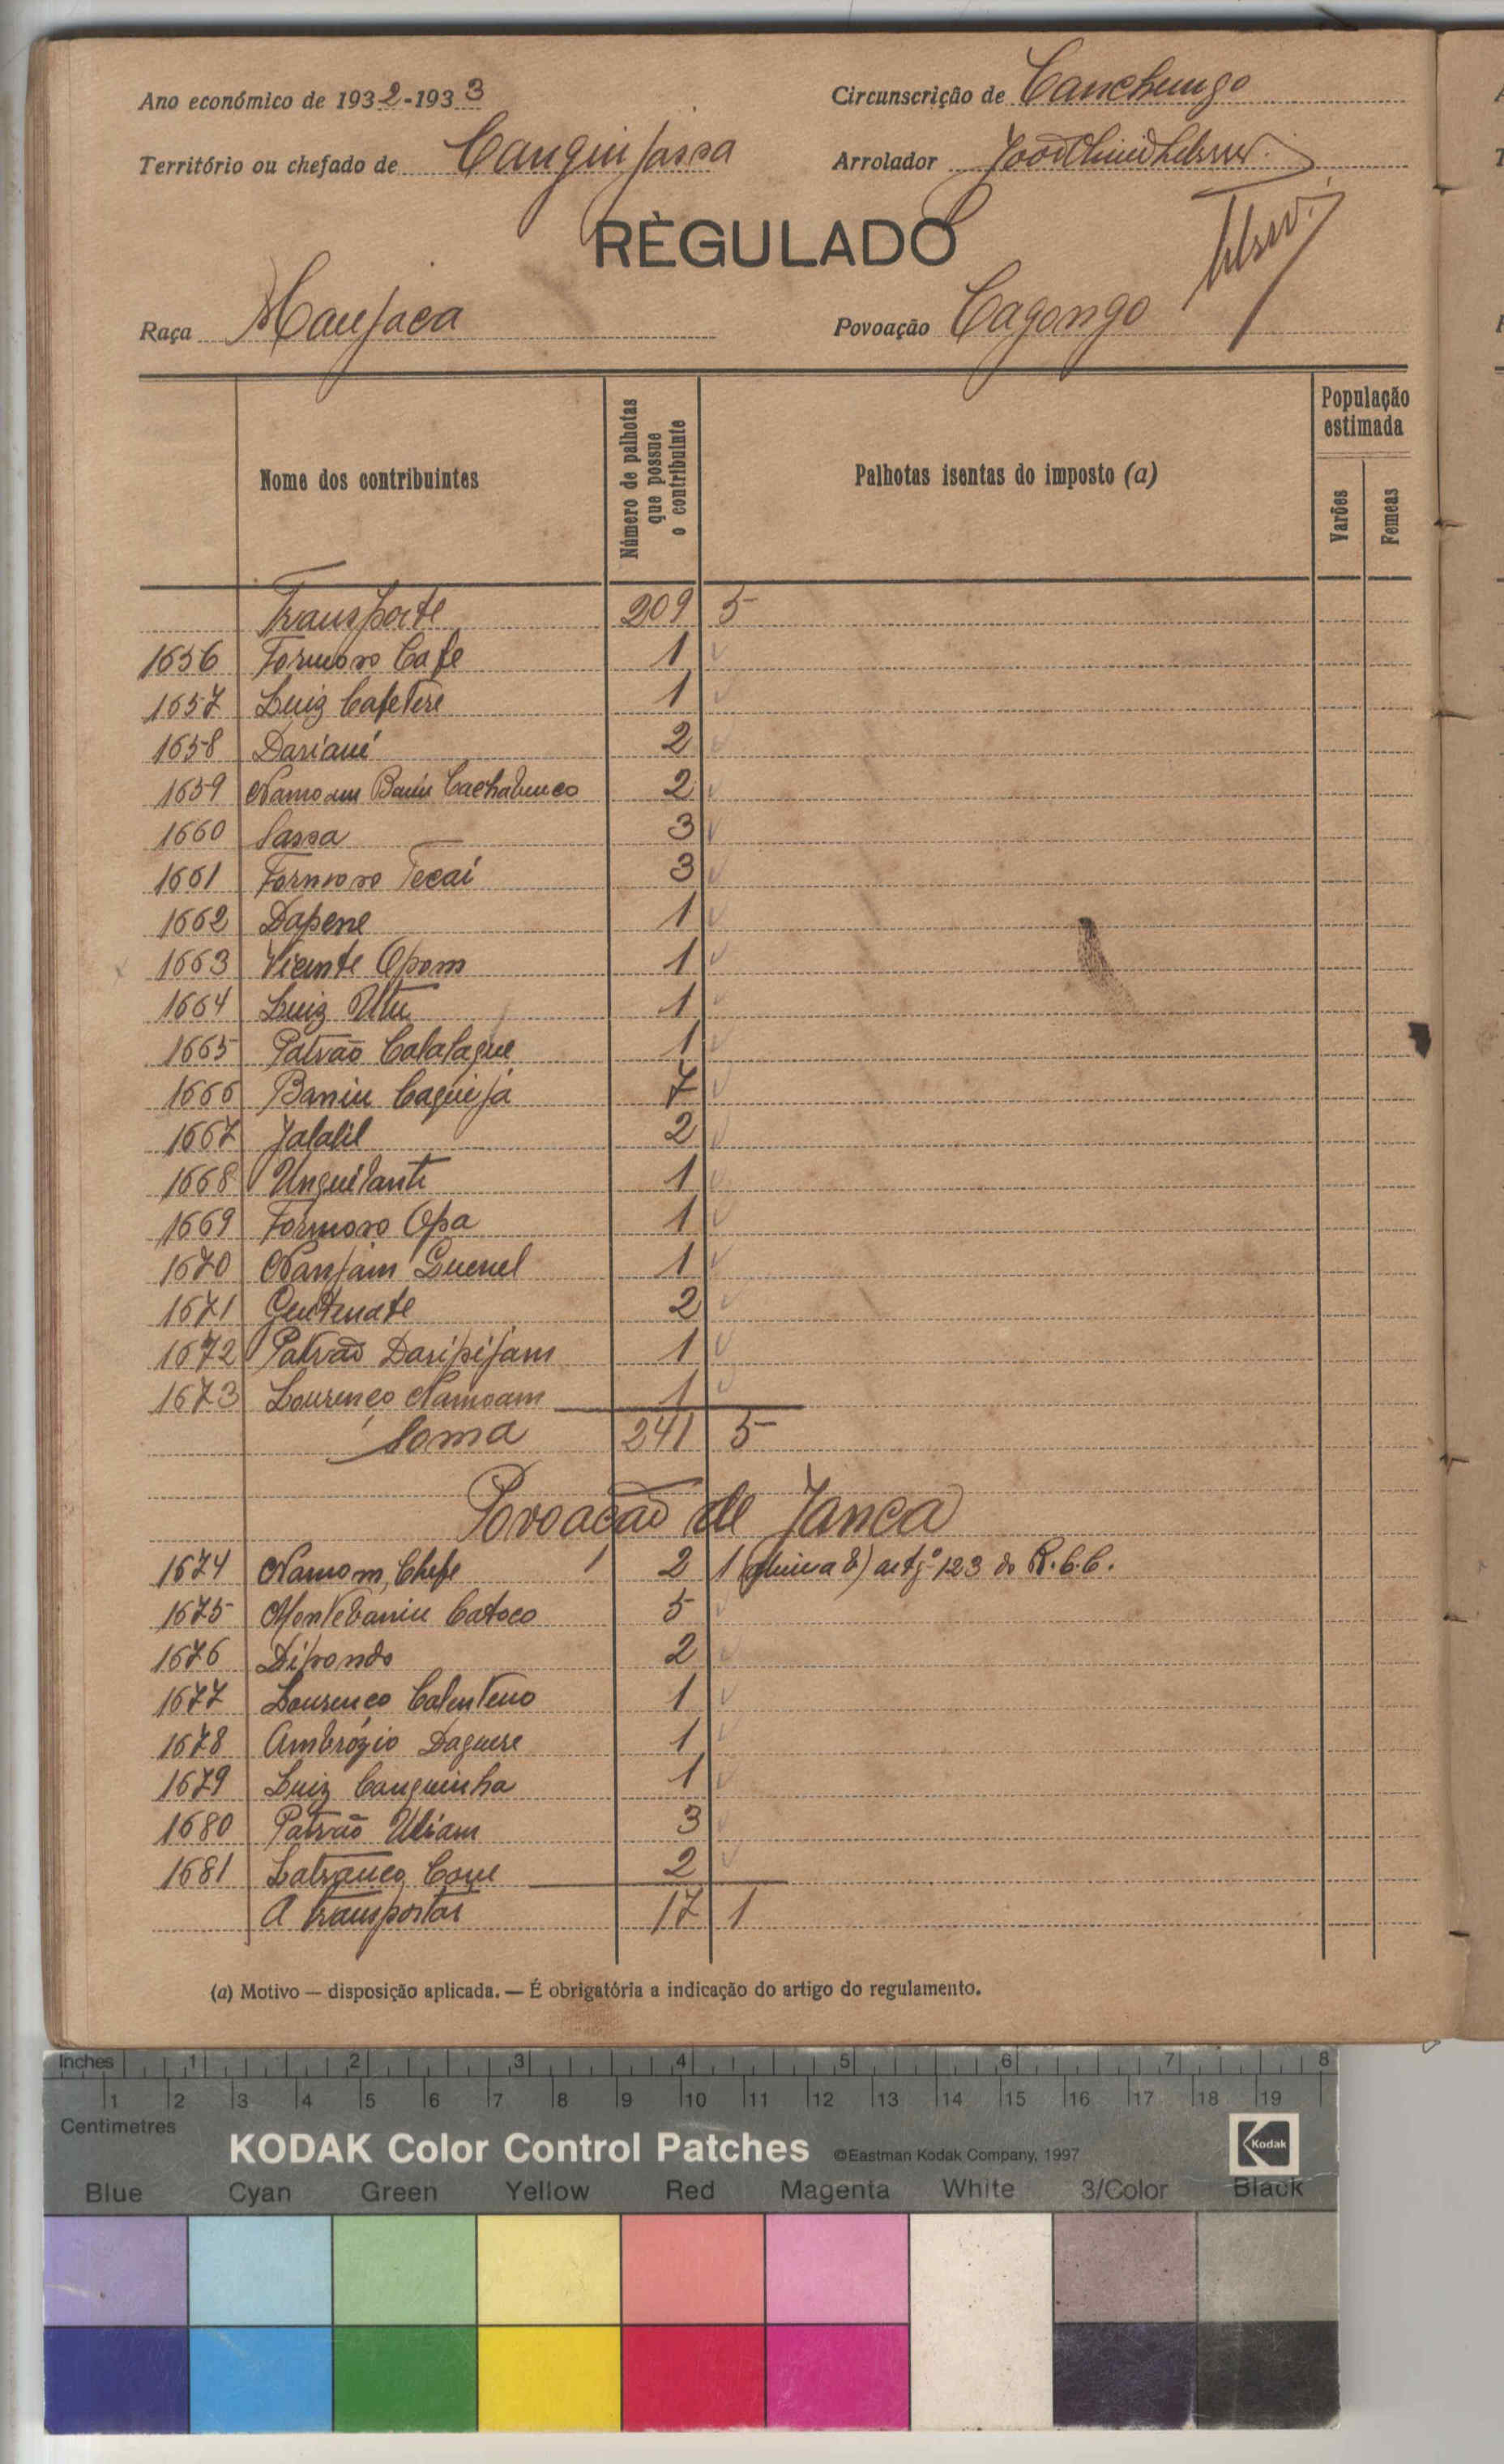 Ano económico de 1932-1933
Circunscrição de Canchungo
Território ou chefado de Canguijassa
Arrolador João
RÈGULADO
Raça Manjaca
Povoação Cagongo
Nome dos contribuintes
Número de palhotas que possue o contribuinte
Palhotas isentas do imposto (a)
População estimada
Varões
Femeas
Transporte 209 5
1656 Formoso Cafe 1
1657 Luiz Cafetere 1
1658 Dariaui 2
1659 Namoam Baniu 2
1660 Sassa 3
1661 Formoso Tecai 3
1662 Dapene 1
1663 Vicente Opom 1
1664 Luiz Utu 1
1665 Patrão Calafaque 1
1666 Baniu Caguijá 7
1667 Jalalil 2
1668 Unguilante 1
1669 Formoso Opa 1
1670 Nanjam Guenel 1
1671 2
1672 Patrão Daripijam 1
1673 Lourenço Namoam 1
Soma 241 5
Povoação de Janca
1674 Namom, Chefe 1 2 1 (alinea b) artgº 123 do R.C.C.
1675 Montebaniu Catoco 5
1676 Dipondo 2
1677 Lourenço Calenteno 1
1678 Ambrózio Daguere 1
1679 Luiz Canguinha 1
1680 Patrão Uliam 3
1681 2
A transportar 17 1
(a) Motivo — disposição aplicada. — É obrigatória a indicação do artigo do regulamento.
Inches 1 2 3 4 5 6 7 8
1 2 3 4 5 6 7 8 9 10 11 12 13 14 15 16 17 18 19
Centimetres
KODAK Color Control Patches ©Eastman Kodak Company, 1997 Kodak
Blue Cyan Green Yellow Red Magenta White 3/Color Black